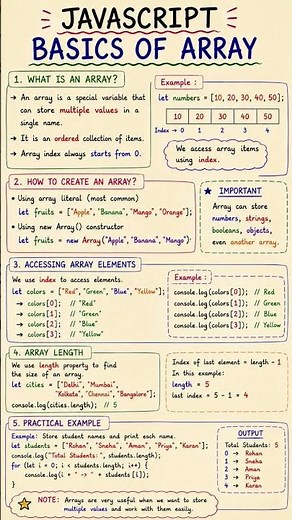 JAVASCRIPT
BASICS OF ARRAY
1. WHAT IS AN ARRAY?
→ An array is a special variable that
can store multiple values in a
single name.
→ It is an ordered collection of items.
→ Array index always starts from 0.
Example :
let numbers = [10, 20, 30, 40, 50];
10 20 30 40 50
Index → 0 1 2 3 4
We access array items
using index.
2. HOW TO CREATE AN ARRAY?
• Using array literal (most common)
let fruits = ["Apple", "Banana", "Mango", "Orange"];
• Using new Array() constructor
let fruits = new Array("Apple", "Banana", "Mango")
★ IMPORTANT
Array can store
numbers, strings,
booleans, objects,
even another array.
3. ACCESSING ARRAY ELEMENTS
We use index to access elements.
let colors = ["Red", "Green", "Blue", "Yellow"];
→ colors[0]; // "Red"
→ colors[1]; // "Green"
→ colors[2]; // "Blue"
→ colors[3]; // "Yellow"
Example :
console.log(colors[0]); // Red
console.log(colors[1]); // Green
console.log(colors[2]); // Blue
console.log(colors[3]); // Yellow
4. ARRAY LENGTH
We use length property to find
the size of an array.
let cities = ["Delhi", "Mumbai",
"Kolkata", "Chennai", "Bangalore"];
console.log(cities.length); // 5
Index of last element = length - 1
In this example:
length = 5
last index = 5 - 1 = 4
5. PRACTICAL EXAMPLE
Example: Store student names and print each name.
let students = ["Rohan", "Sneha", "Aman", "Priya", "Karan"];
console.log("Total Students: ", students.length);
for (let i = 0; i < students.length; i++) {
console.log(i + " -> " + students[i]);
}
OUTPUT
Total Students: 5
0 → Rohan
1 → Sneha
2 → Aman
3 → Priya
4 → Karan
NOTE: Arrays are very useful when we want to store
multiple values and work with them easily.